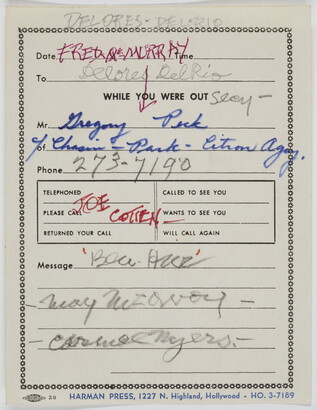 DELORES - DEL RIO
Date FRED McMURRAY Time
To Delores Del Rio
WHILE YOU WERE OUT Secy -
Mr. Gregory Peck
of c/o Chasin - Park - Citron Agcy.
Phone 273-7190
TELEPHONED CALLED TO SEE YOU
PLEASE CALL JOE COTTEN WANTS TO SEE YOU
RETURNED YOUR CALL WILL CALL AGAIN
Message 'Ben-Hur'
- May McAvoy -
- Carmel Myers. -
20 HARMAN PRESS, 1227 N. Highland, Hollywood - HO. 3-7189